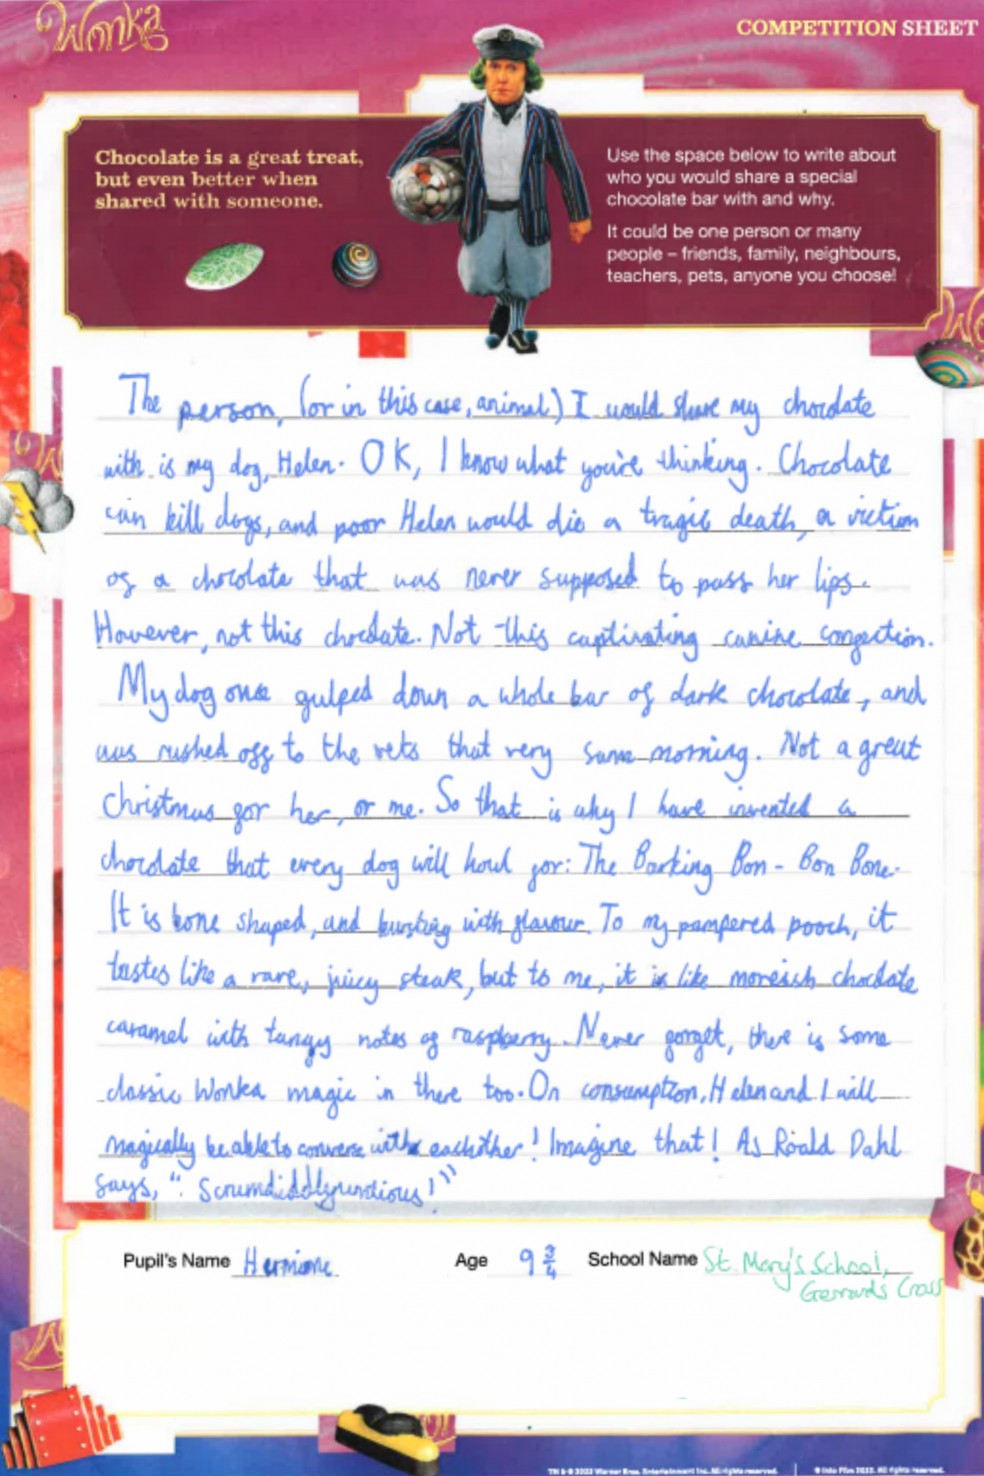 Wonka
COMPETITION SHEET
Chocolate is a great treat,
but even better when
shared with someone.
Use the space below to write about
who you would share a special
chocolate bar with and why.
It could be one person or many
people – friends, family, neighbours,
teachers, pets, anyone you choose!
The person, (or in this case, animal) I would share my chocolate
with is my dog, Helen. OK, I know what you're thinking. Chocolate
can kill dogs, and poor Helen would die a tragic death, a victim
of a chocolate that was never supposed to pass her lips.
However, not this chocolate. Not this captivating canine confection.
My dog once gulped down a whole bar of dark chocolate, and
was rushed off to the vets that very same morning. Not a great
Christmas for her, or me. So that is why I have invented a
chocolate that every dog will howl for: The Barking Bon - Bon Bone.
It is bone shaped, and bursting with flavour. To my pampered pooch, it
tastes like a rare, juicy steak, but to me, it is like moreish chocolate
caramel with tangy notes of raspberry. Never forget, there is some
classic Wonka magic in there too. On consumption, Helen and I will
magically be able to converse with eachother! Imagine that! As Roald Dahl
says, "Scrumdiddlyumtious!"
Pupil's Name Hermione Age 9 3/4 School Name St. Mary's School,
Gerrards Cross
TM & © 2023 Warner Bros. Entertainment Inc. All rights reserved. | © Into Film 2023. All rights reserved.